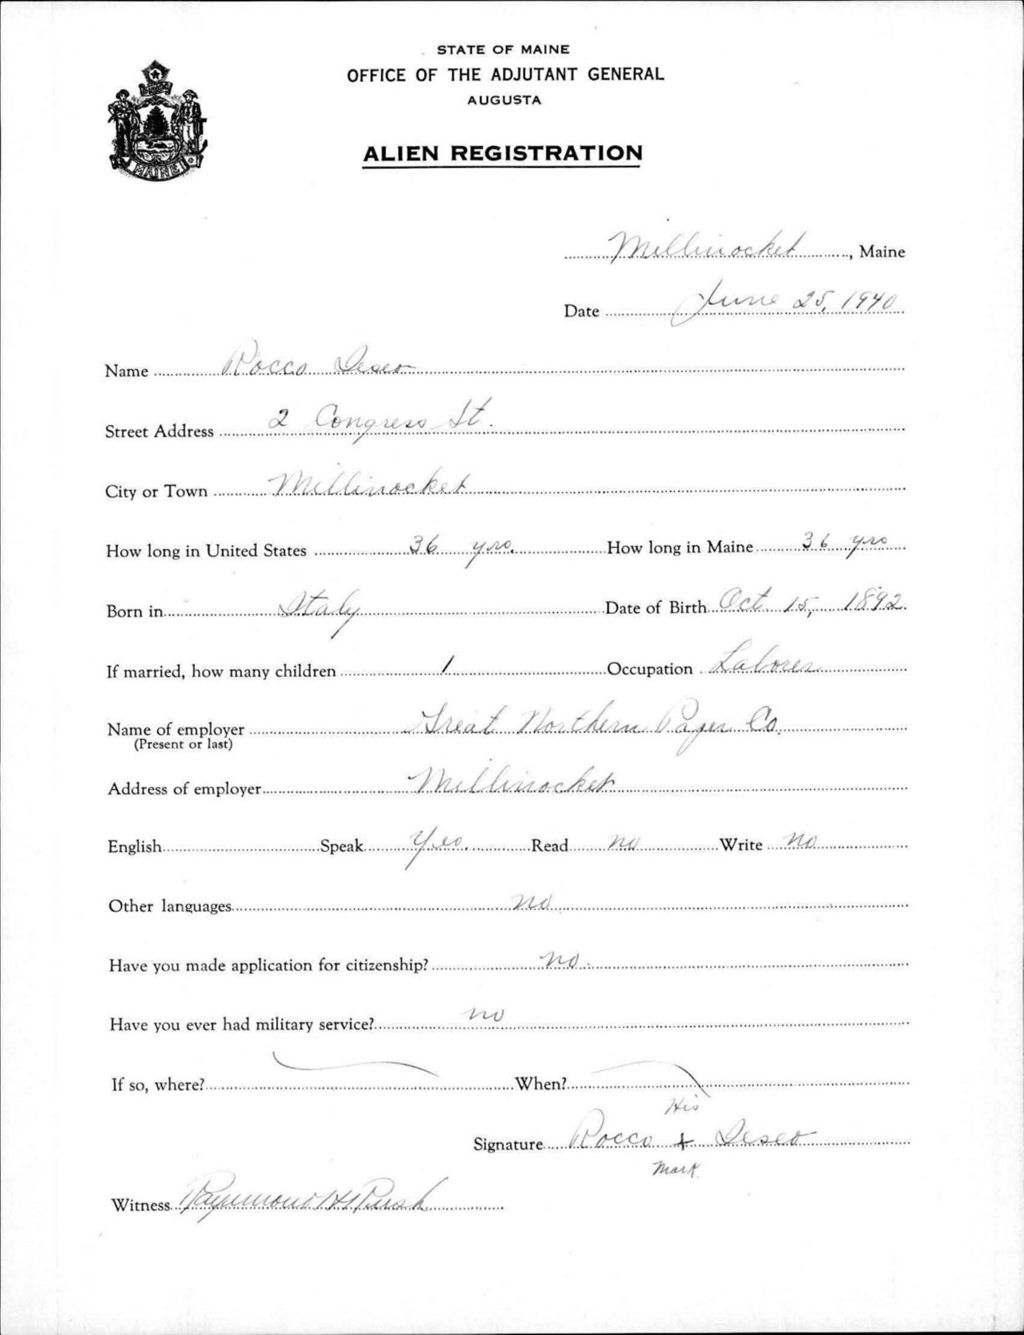 STATE OF MAINE
OFFICE OF THE ADJUTANT GENERAL
AUGUSTA
ALIEN REGISTRATION
MAINE
Millinocket, Maine
Date June 25, 1940
Name Rocco Deseo
Street Address 2 Congress St.
City or Town Millinocket
How long in United States 36 yrs. How long in Maine 36 yrs
Born in Italy Date of Birth Oct 15, 1892
If married, how many children 1 Occupation Laborer
Name of employer Great Northern Paper Co.
(Present or last)
Address of employer Millinocket
English Speak Yes. Read no Write no
Other languages no
Have you made application for citizenship? no.
Have you ever had military service? no
If so, where? When?
His
Signature Rocco + Deseo
mark
Witness Raymond H